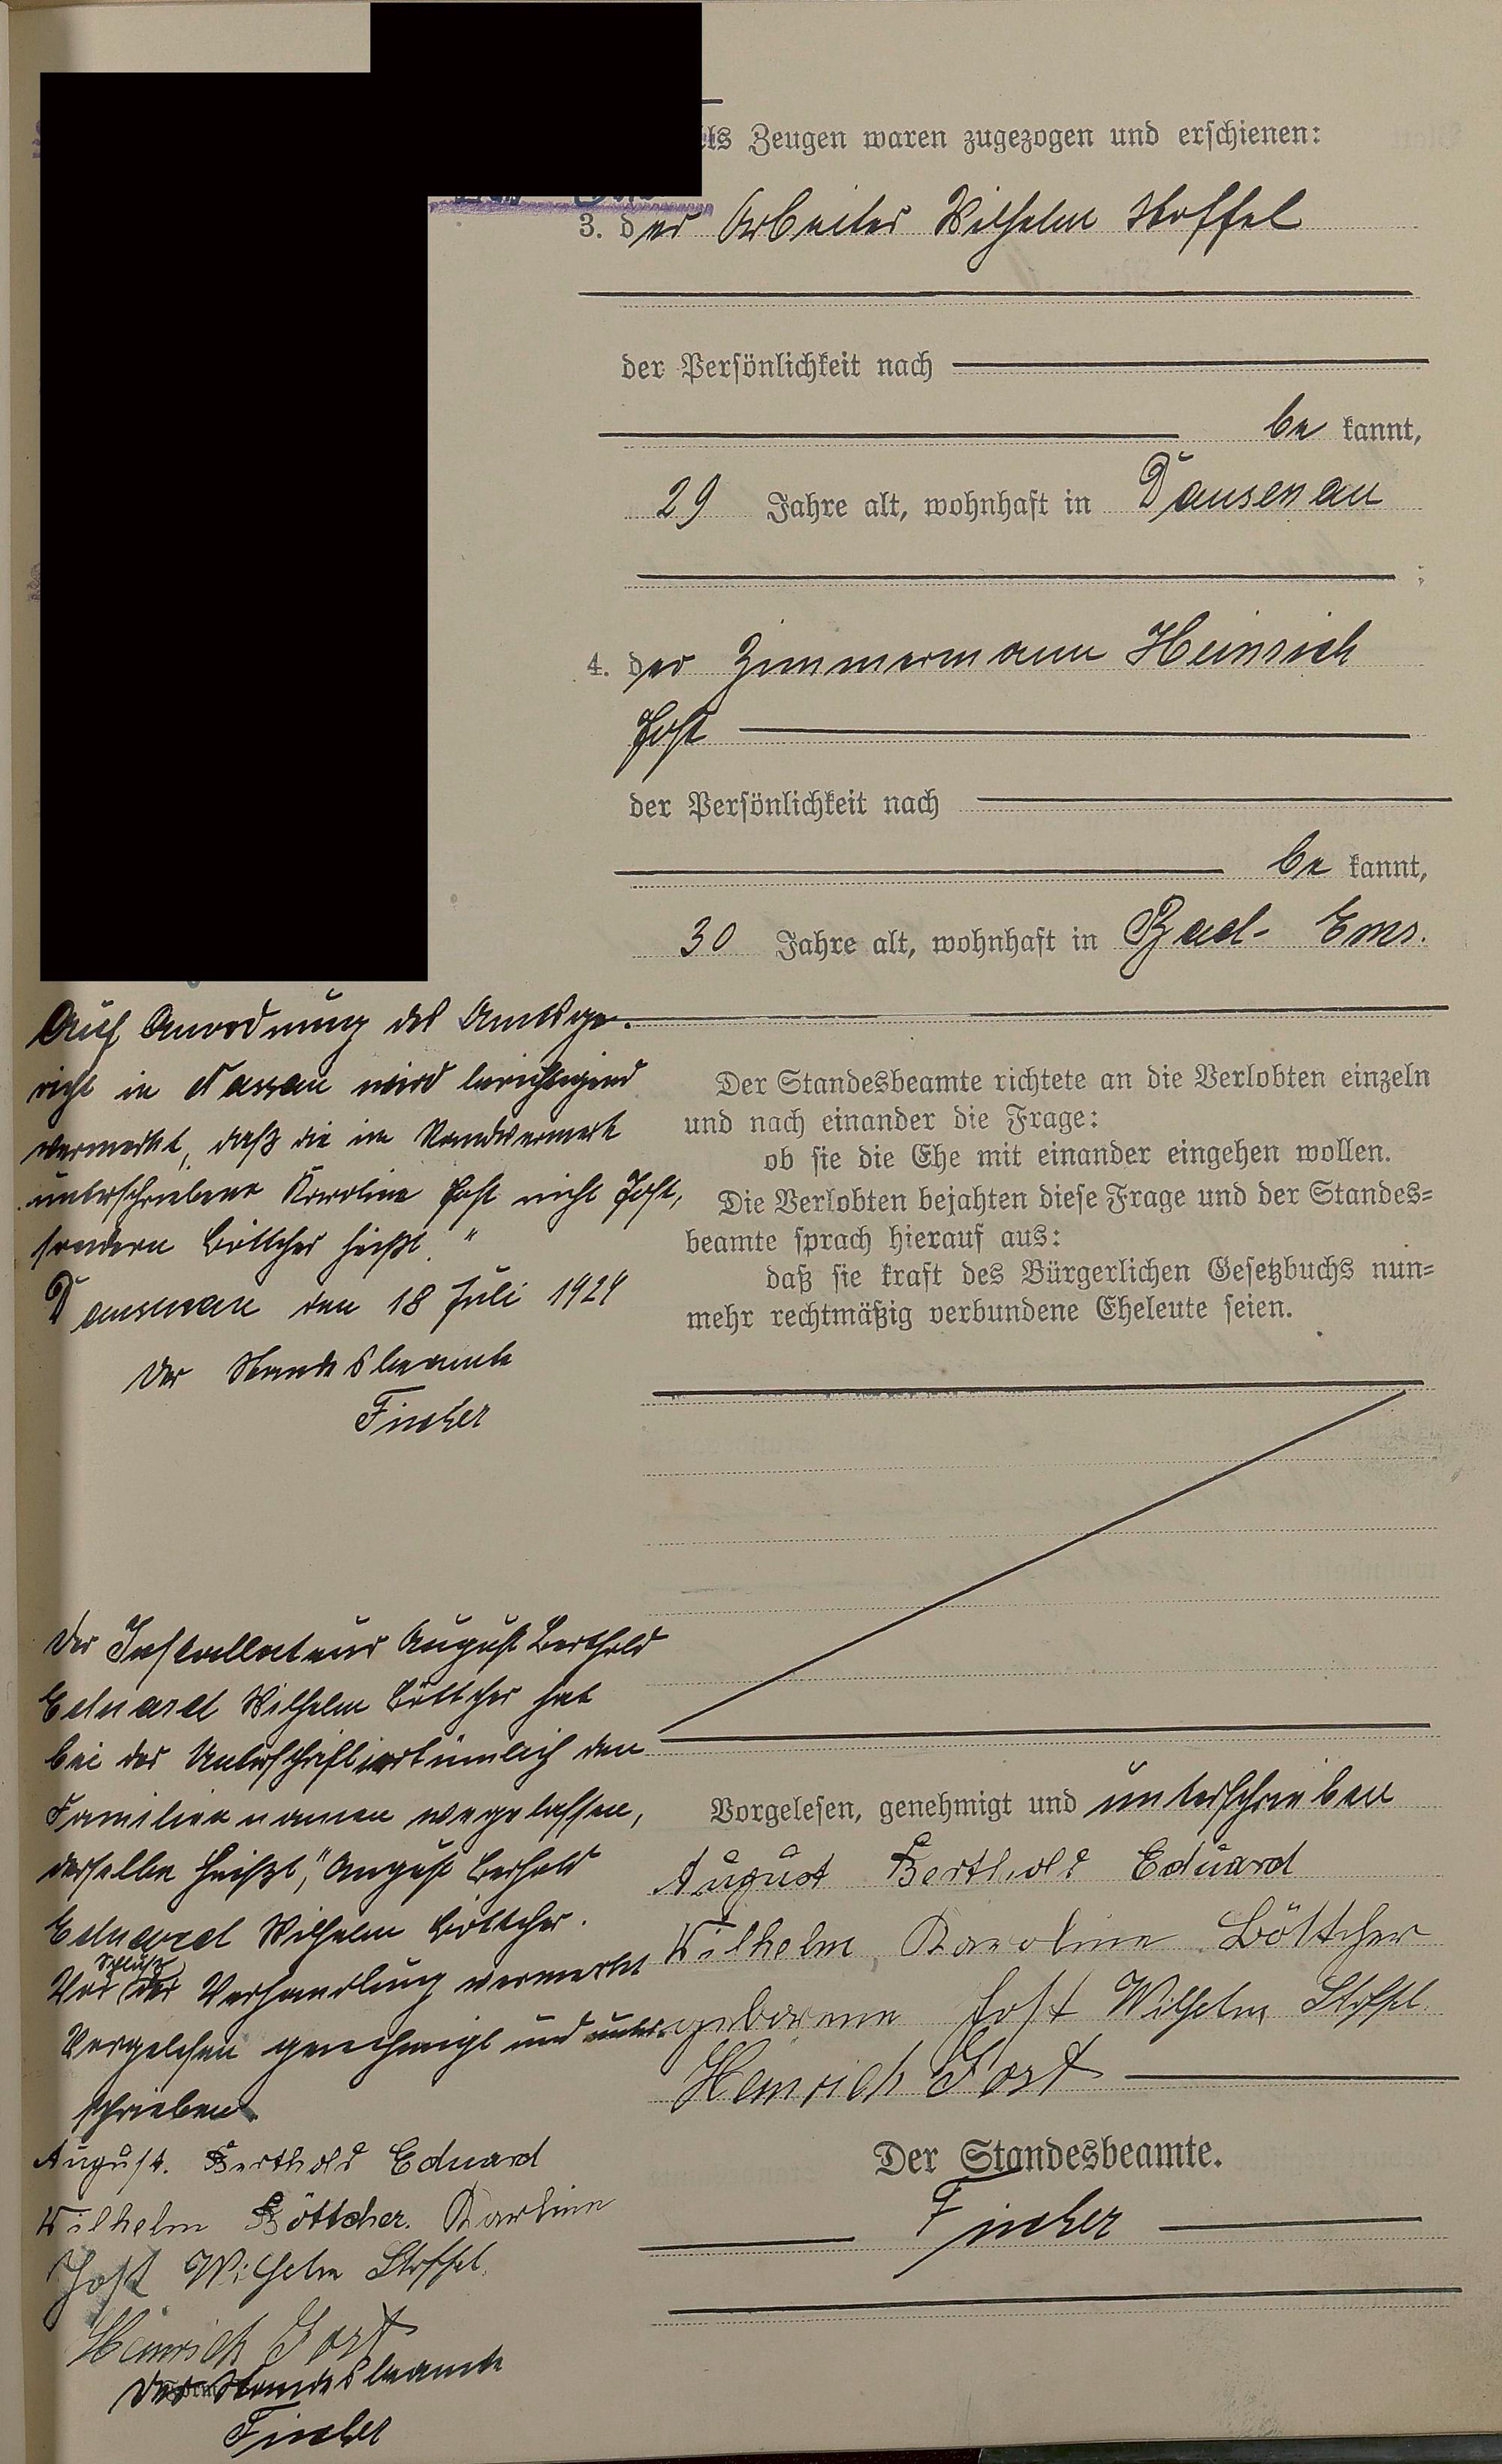 als Zeugen waren zugezogen und erschienen:
3. der Arbeiter Wilhelm Stoffel
der Persönlichkeit nach
be kannt,
29 Jahre alt, wohnhaft in Dausenau
;
4. der Zimmermann Heinrich
Jost
der Persönlichkeit nach
be kannt,
30 Jahre alt, wohnhaft in Bad-Ems.
Der Standesbeamte richtete an die Verlobten einzeln
und nach einander die Frage:
ob sie die Ehe mit einander eingehen wollen.
Die Verlobten bejahten diese Frage und der Standes=
beamte sprach hierauf aus:
daß sie kraft des Bürgerlichen Gesetzbuchs nun=
mehr rechtmäßig verbundene Eheleute seien.
Vorgelesen, genehmigt und unterschrieben
August Berthold Eduard
Wilhelm, Karoline Böttcher
geborene Jost Wilhelm Stoffel.
Heinrich Jost
Der Standesbeamte.
Fischer
Auf Anordnung des Amtsge-
richt in Nassau wird berichtigend
vermerkt, daß die im Randvermerk
unterschriebene Karoline Jost nicht Jost,
sondern Böttcher heißt."
Dausenau den 18 Juli 1924
Der Standesbeamte
Fischer
Der Installateur August Berthold
Eduard Wilhelm Böttcher hat
bei der Unterschrift irrtümlich den
Familiennamen wegelassen,
derselbe heißt, "August Berhold
Eduard Wilhelm Böttcher.
Vor Schluß der Verhandlung vermerkt
Vorgelesen genehmigt und unter-
schrieben
August. Berthold Eduard
Wilhelm Böttcher. Karline
Jost Wilhelm Stoffel.
Heinrich Jost
Der Standesbeamte
Fischer